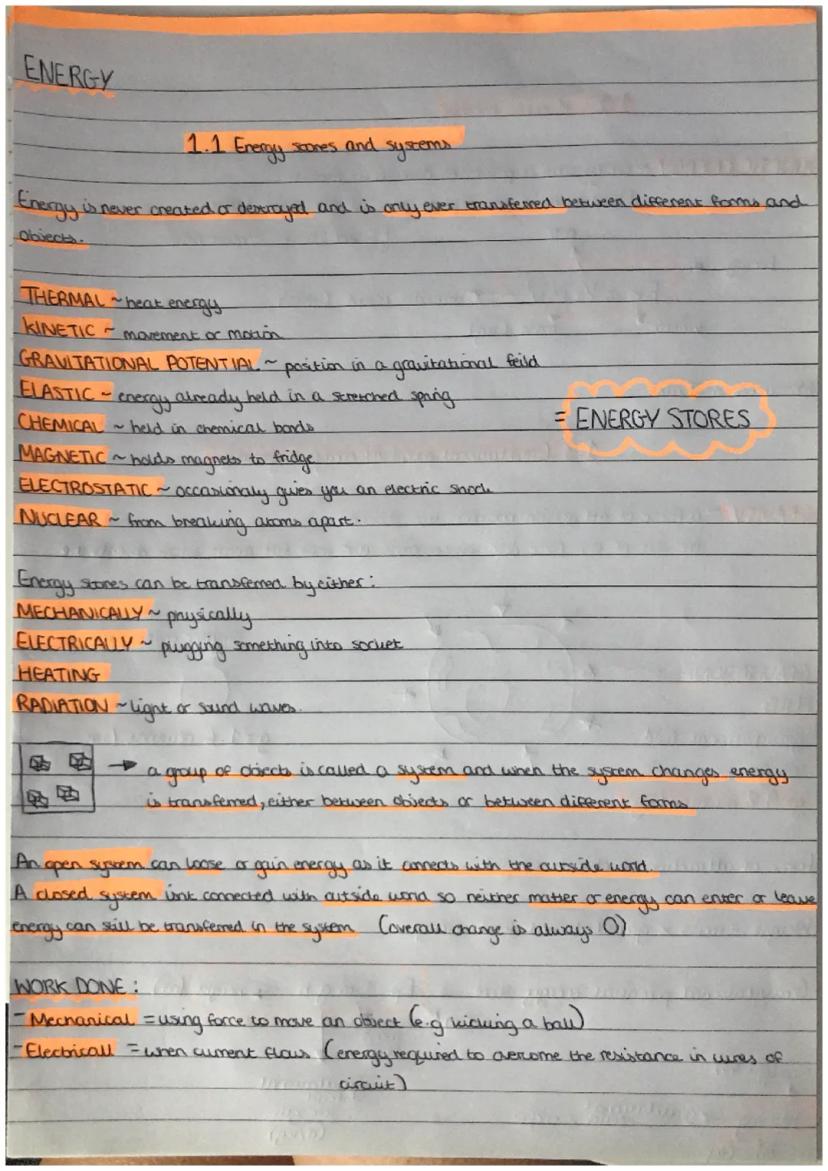 ENERGY
1.1 Energy stores and systems
Energy is never created or destroyed and is only ever transferred between different forms and
objects.
THERMAL ~ heat energy
KINETIC ~ movement or motion
GRAVITATIONAL POTENTIAL ~ position in a gravitational feild
ELASTIC ~ energy already held in a stretched spring
CHEMICAL ~ held in chemical bonds
= ENERGY STORES
MAGNETIC ~ holds magnets to fridge
ELECTROSTATIC ~ occasionaly gives you an electric shock
NUCLEAR ~ from breaking atoms apart.
Energy stores can be transferred by either:
MECHANICALLY ~ physically
ELECTRICALLY ~ plugging something into socket
HEATING
RADIATION ~ light or sound waves.
→ a group of objects is called a system and when the system changes energy
is transferred, either between objects or between different forms
An open system can loose or gain energy as it connects with the outside world
A closed system isnt connected with outside world so neither matter or energy can enter or leave
energy can still be transferred in the system (overall change is always 0)
WORK DONE:
- Mechanical = using force to move an object (e.g kicking a ball)
- Electricall = when current flows (energy required to overcome the resistance in wires of
circuit)